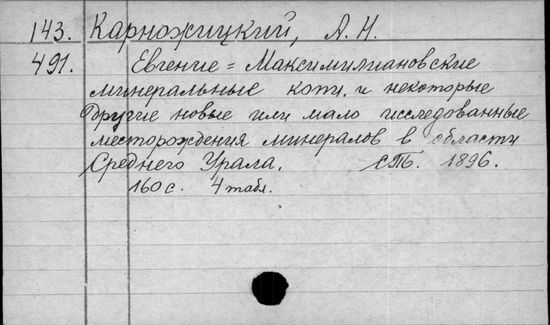 143. Карножицкий, А. Н.
491. Евгение = Максимилиановские
минеральные копи и некоторые
другие новые или мало исследованные
месторождения минералов в области
Среднего Урала. СПБ. 1896.
160 с. 4 табл.